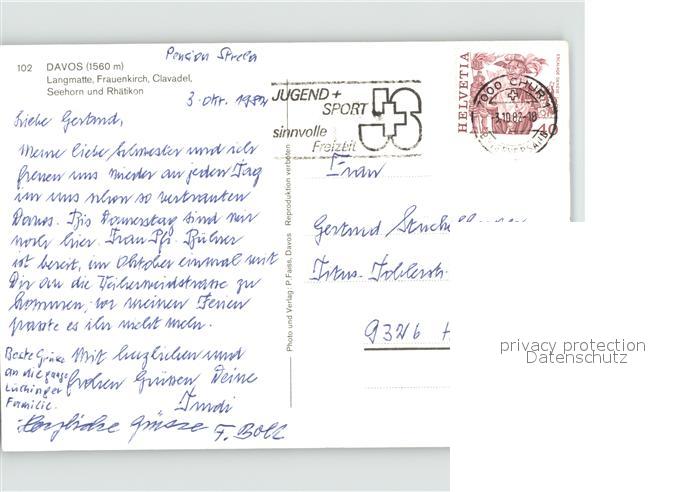 102 DAVOS (1560 m)
Langmatte, Frauenkirch, Clavadel,
Seehorn und Rhätikon
Pension Strela
3. Okt. 1982
Liebe Gertrud,
Meine liebe Schwester und ich
freuen uns wieder an jedem Tag
im uns schon so vertrauten
Davos. Bis Donnerstag sind wir
noch hier. Frau Pfr. Bühler
ist bereit, im Oktober einmal mit
Dir an die
kommen, vor meinen Ferien
passte es ihr nicht mehr.
Mit herzlichen und
frohen Grüssen Deine
Trudi
Beste Grüsse
an die ganze
Lüchinger
Familie.
Herzliche Grüsse F. Boll
Photo und Verlag: P. Fass, Davos Reproduktion verboten
JUGEND +
SPORT
sinnvolle
Freizeit
HELVETIA
40
7000 CHUR
-3.10.82-18
Frau
Gertrud
9326
privacy protection
Datenschutz